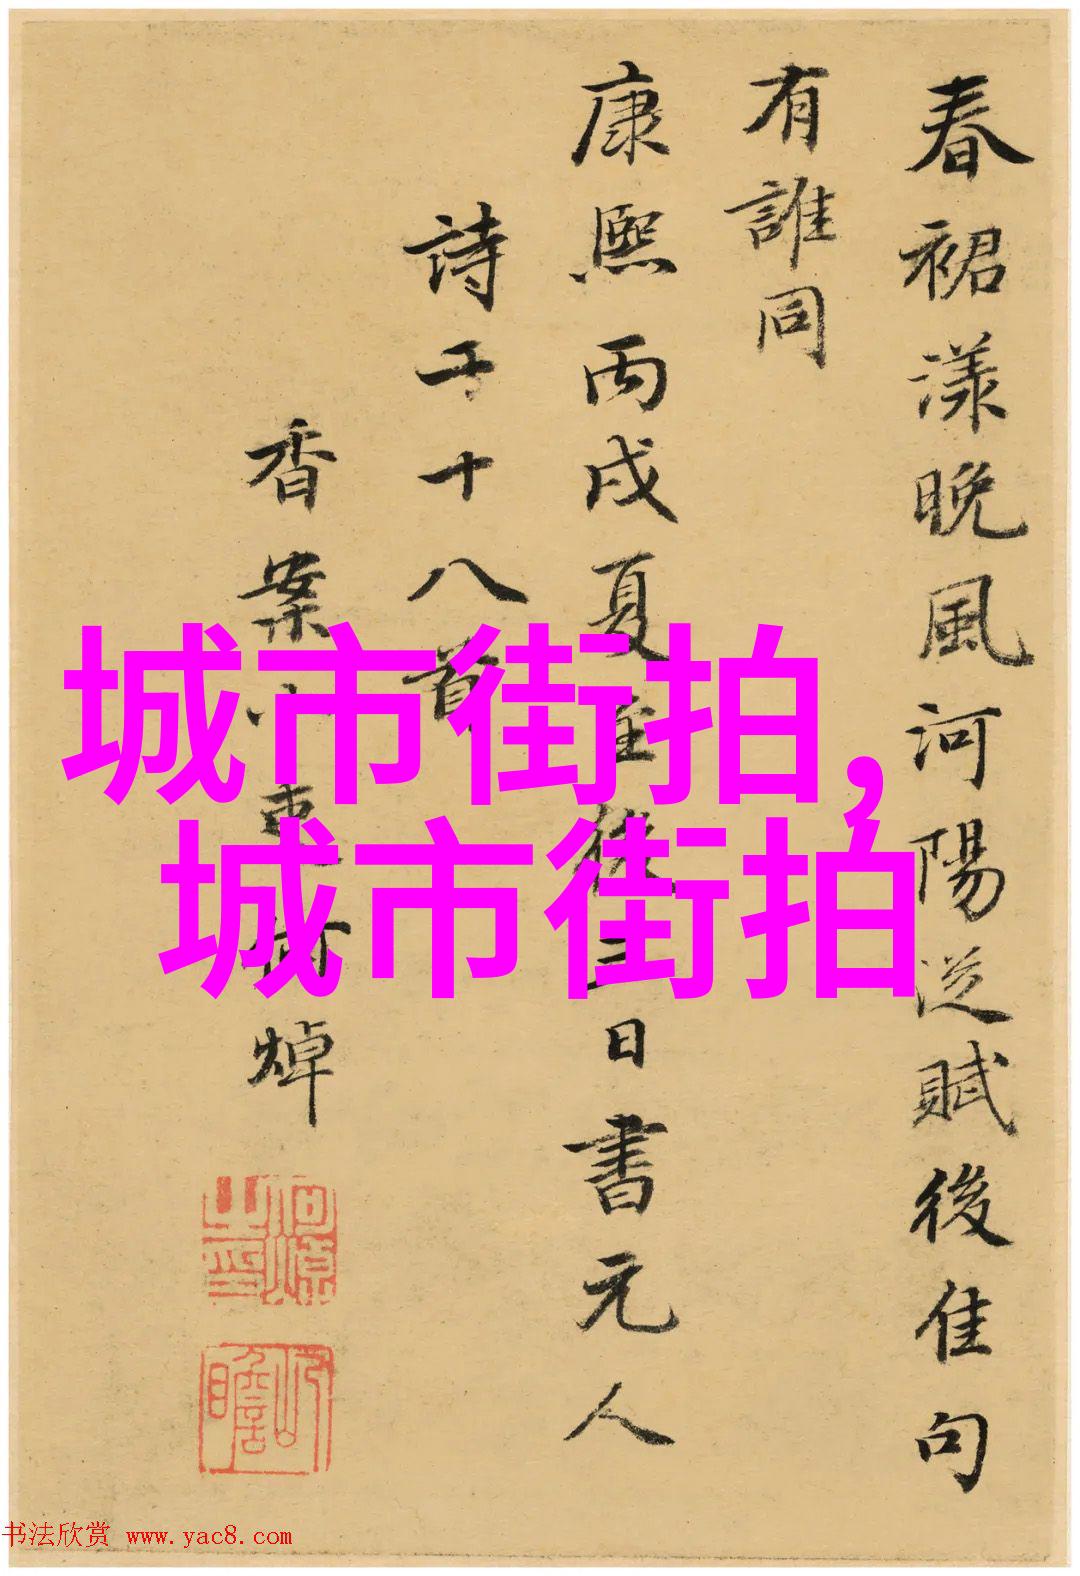 春裙漾晚風河陽送賦後佳句
有誰同
康熙丙戌夏至後三日書元人
詩十八首
香案小吏何焯
城市街拍,
城市街拍
书法欣赏 www.yac8.com